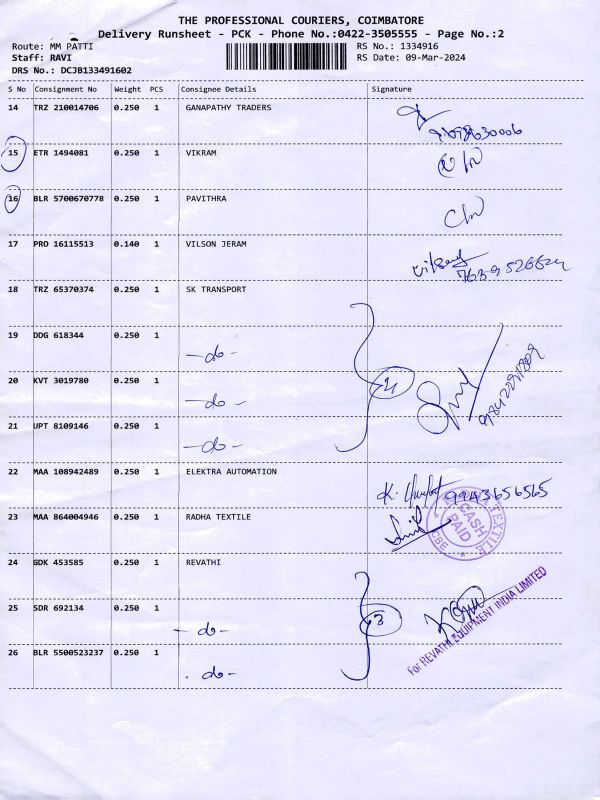 THE PROFESSIONAL COURIERS, COIMBATORE
Delivery Runsheet - PCK - Phone No.:0422-3505555 - Page No.:2
Route: MM PATTI
Staff: RAVI
DRS No.: DCJB133491602
RS No.: 1334916
RS Date: 09-Mar-2024
S No Consignment No Weight PCS Consignee Details Signature
14 TRZ 210014706 0.250 1 GANAPATHY TRADERS
15 ETR 1494081 0.250 1 VIKRAM
16 BLR 5700670778 0.250 1 PAVITHRA
17 PRO 16115513 0.140 1 VILSON JERAM
18 TRZ 65370374 0.250 1 SK TRANSPORT
19 DDG 618344 0.250 1 -do-
20 KVT 3019780 0.250 1 -do-
21 UPT 8109146 0.250 1 -do-
4
22 MAA 108942489 0.250 1 ELEKTRA AUTOMATION K. 9943656565
23 MAA 864004946 0.250 1 RADHA TEXTILE
CASH PAID TEXTILE CBE
24 GDK 453585 0.250 1 REVATHI
25 SDR 692134 0.250 1 -do-
3
For REVATHI EQUIPMENT INDIA LIMITED
26 BLR 5500523237 0.250 1 -do-